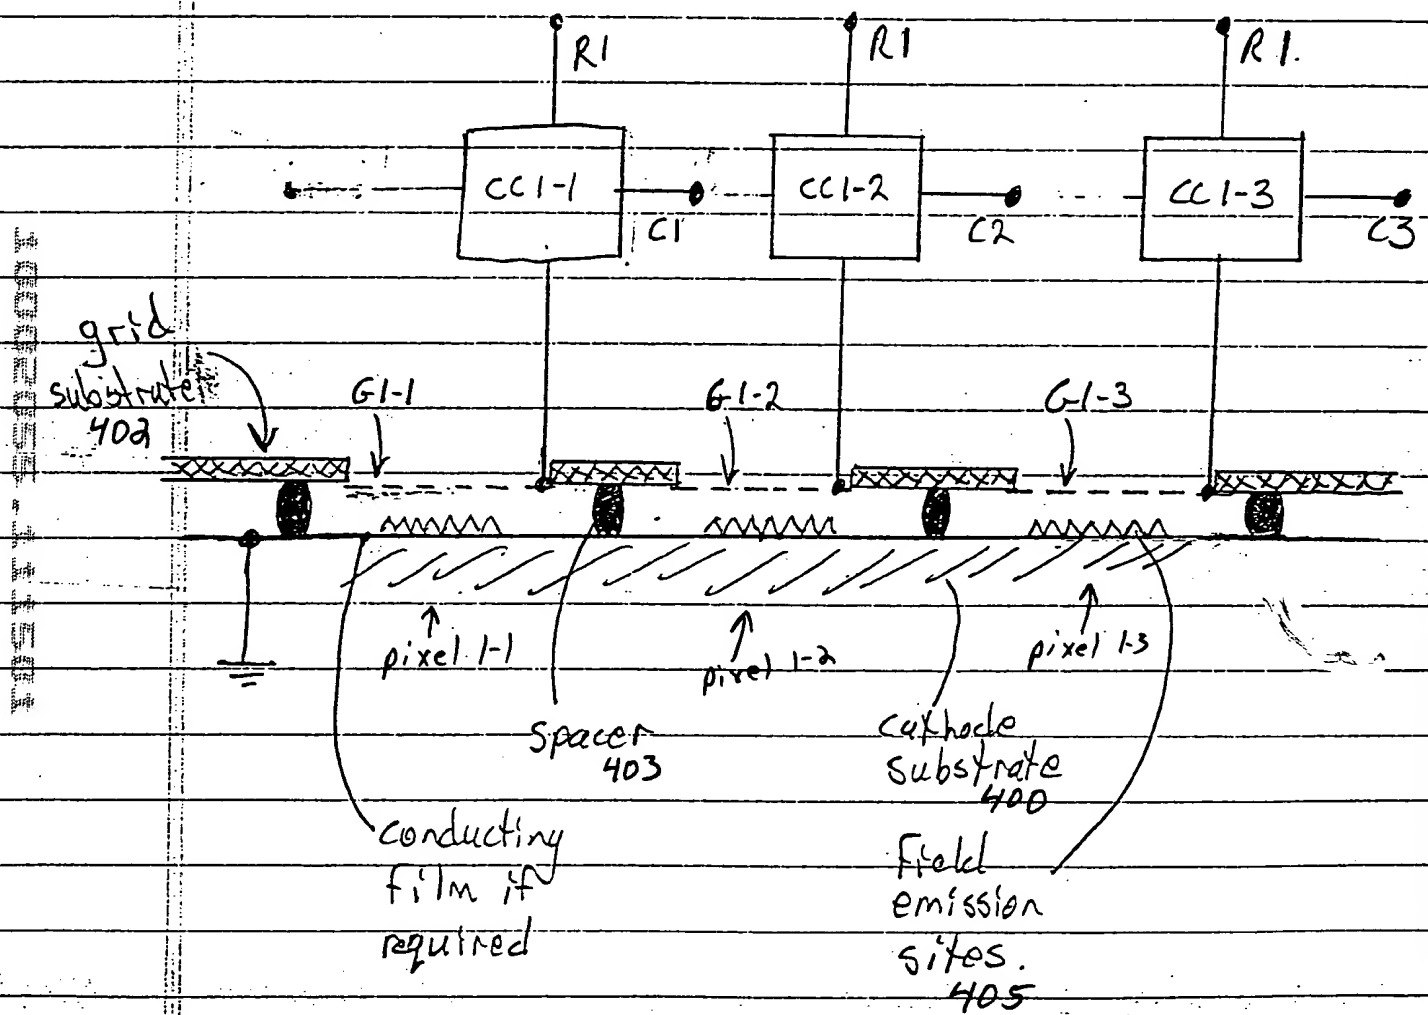 R1
R1
R1.
CC1-1
CC1-2
CC1-3
C1
C2
C3
grid
substrate
402
G1-1
G1-2
G1-3
pixel 1-1
pixel 1-2
pixel 1-3
spacer
403
cathode
substrate
400
conducting
film if
required
field
emission
sites.
405